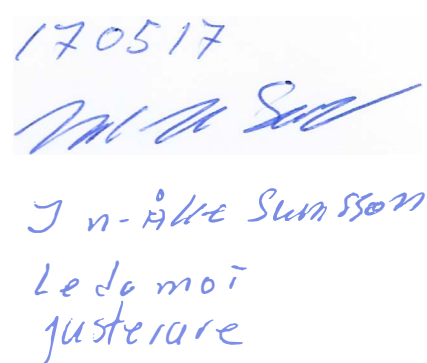 170517
Jan-Åke Svensson
Ledamot
justerare